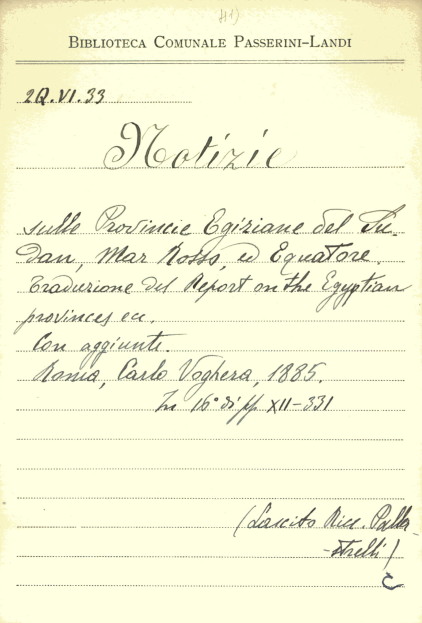 41)
BIBLIOTECA COMUNALE PASSERINI-LANDI
2Q.VI.33
Notizie
sulle Provincie Egiziane del Su-
dan, Mar Rosso, ed Equatore.
Traduzione del Report on the Egyptian
provinces ecc.
Con aggiunte.
Roma, Carlo Voghera, 1885.
In 16° di pp XII-331
(Lascito Ricc. Palla-
-strelli)
C